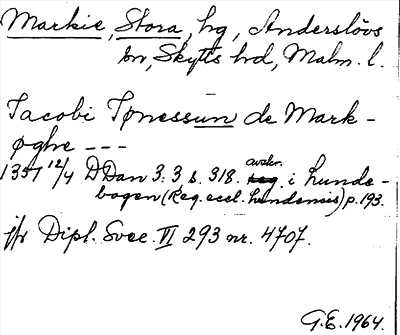 Markie, Stora, hg, Anderslövs
sn, Skytts hd, Malm. l.
Jacobi Tønessun de Mark-
øghe ---
1351 12/4 DDan 3:3 s. 318. avskr. i Lunde-
bogen (Reg. eccl. Lundensis) p. 193.
jfr Dipl. Svec. VI 293 nr. 4707.
G.E. 1964.